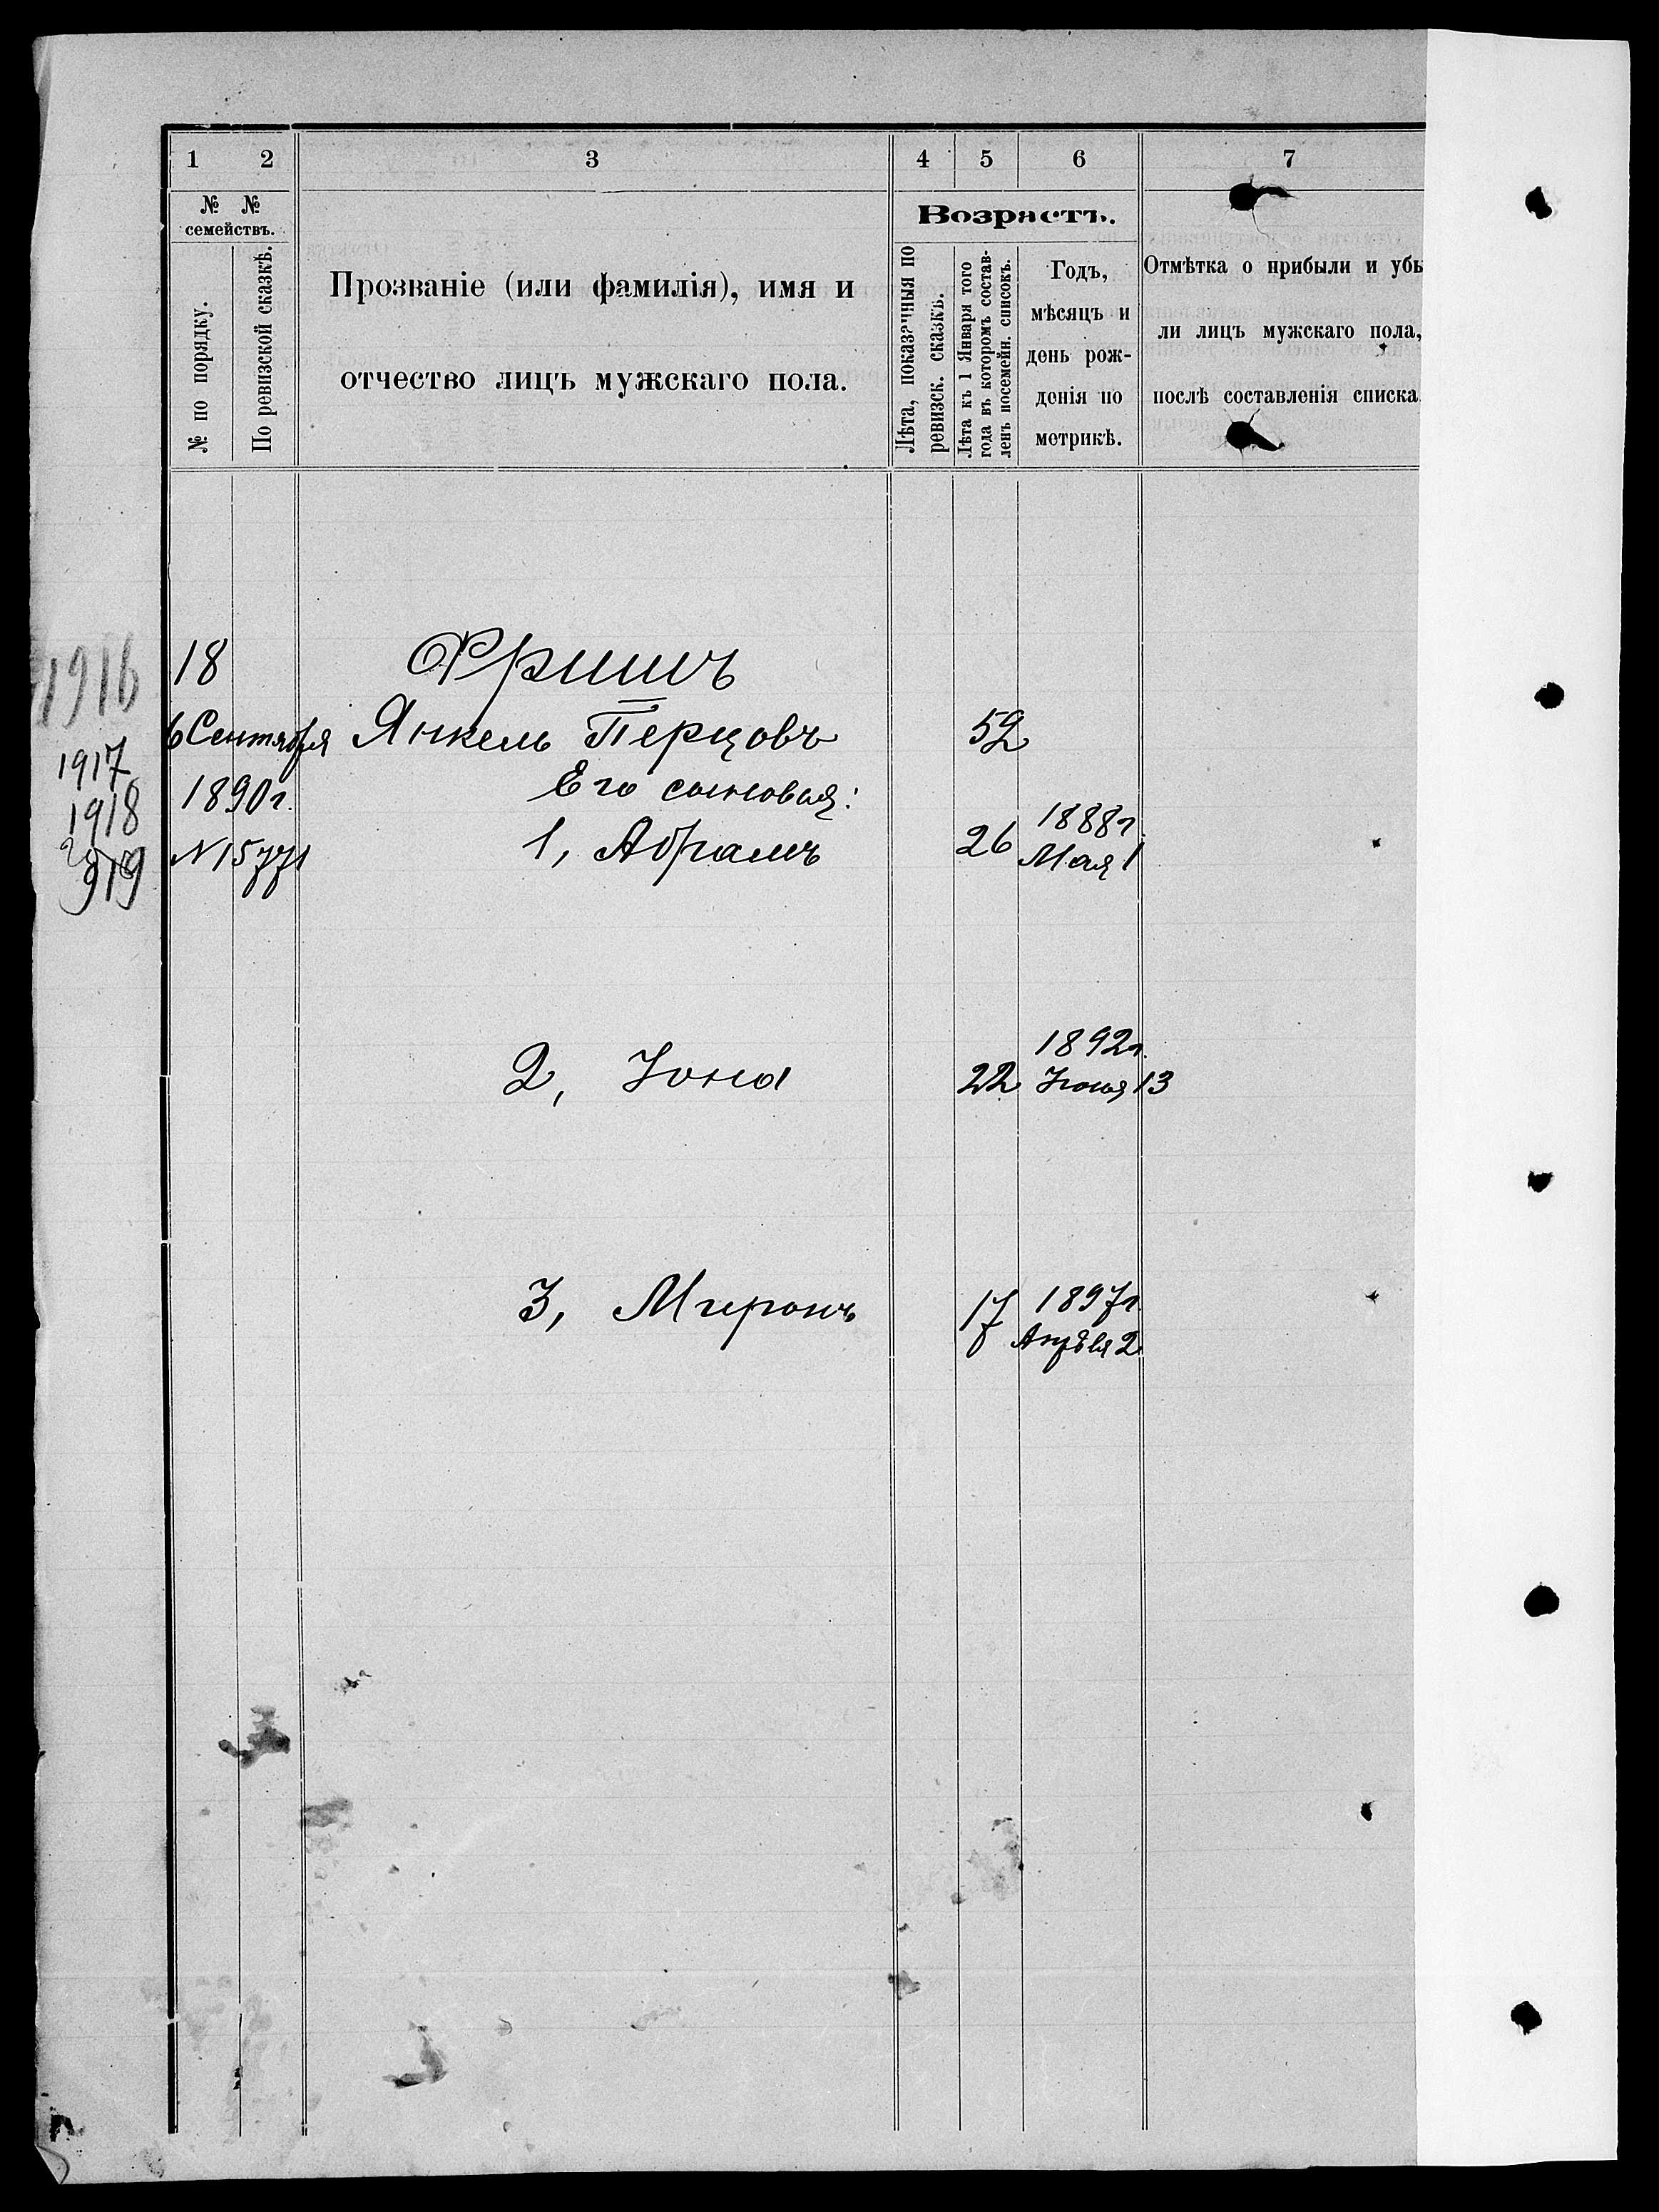 1 2 3 4 5 6 7
№ № семействъ.
№ по порядку.
По ревизской сказкѣ.
Прозваніе (или фамилія), имя и
отчество лицъ мужскаго пола.
Возрастъ.
Лѣта, показанныя по
ревизск. сказкѣ.
Лѣта къ 1 Января того
года въ которомъ состав-
ленъ посемейн. списокъ.
Годъ,
мѣсяцъ и
день рож-
денія по
метрикѣ.
Отмѣтка о прибыли и убы
ли лицъ мужскаго пола,
послѣ составленія списка
1916
1917
1918
919
18
6 Сентября
1890г.
N 15771
Фришъ
Янкель Перцовъ 52
Его сыновья:
1, Абрамъ 26 1888г.
Мая 1
2, Іона 22 1892г.
Іюня 13
3, Миронъ 17 1897г.
Апрѣля 2